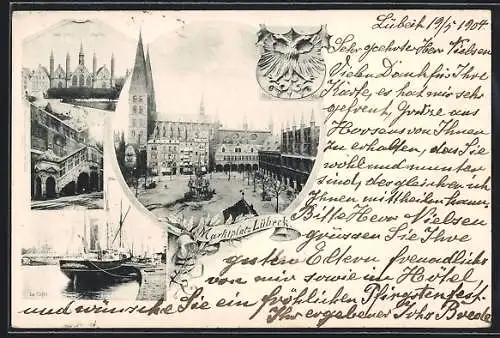 Lübeck 19/5 1904.
Sehr geehrter Herr Nielsen
Vielen Dank für Ihre
Karte, es hat mir sehr
gefreut, Grüße aus
von Ihnen
zu erhalten, das Sie
wohl und munter
sind, des gleichen ich
Ihnen mittheilen kann,
Bitte Herr Nielsen
grüssen Sie Ihre
guten Eltern freundlichst
von mir sowie im Hôtel,
und wünsche Sie ein fröhlichen Pfingstenfest.
Ihr ergebener Johs
Marktplatz Lübeck